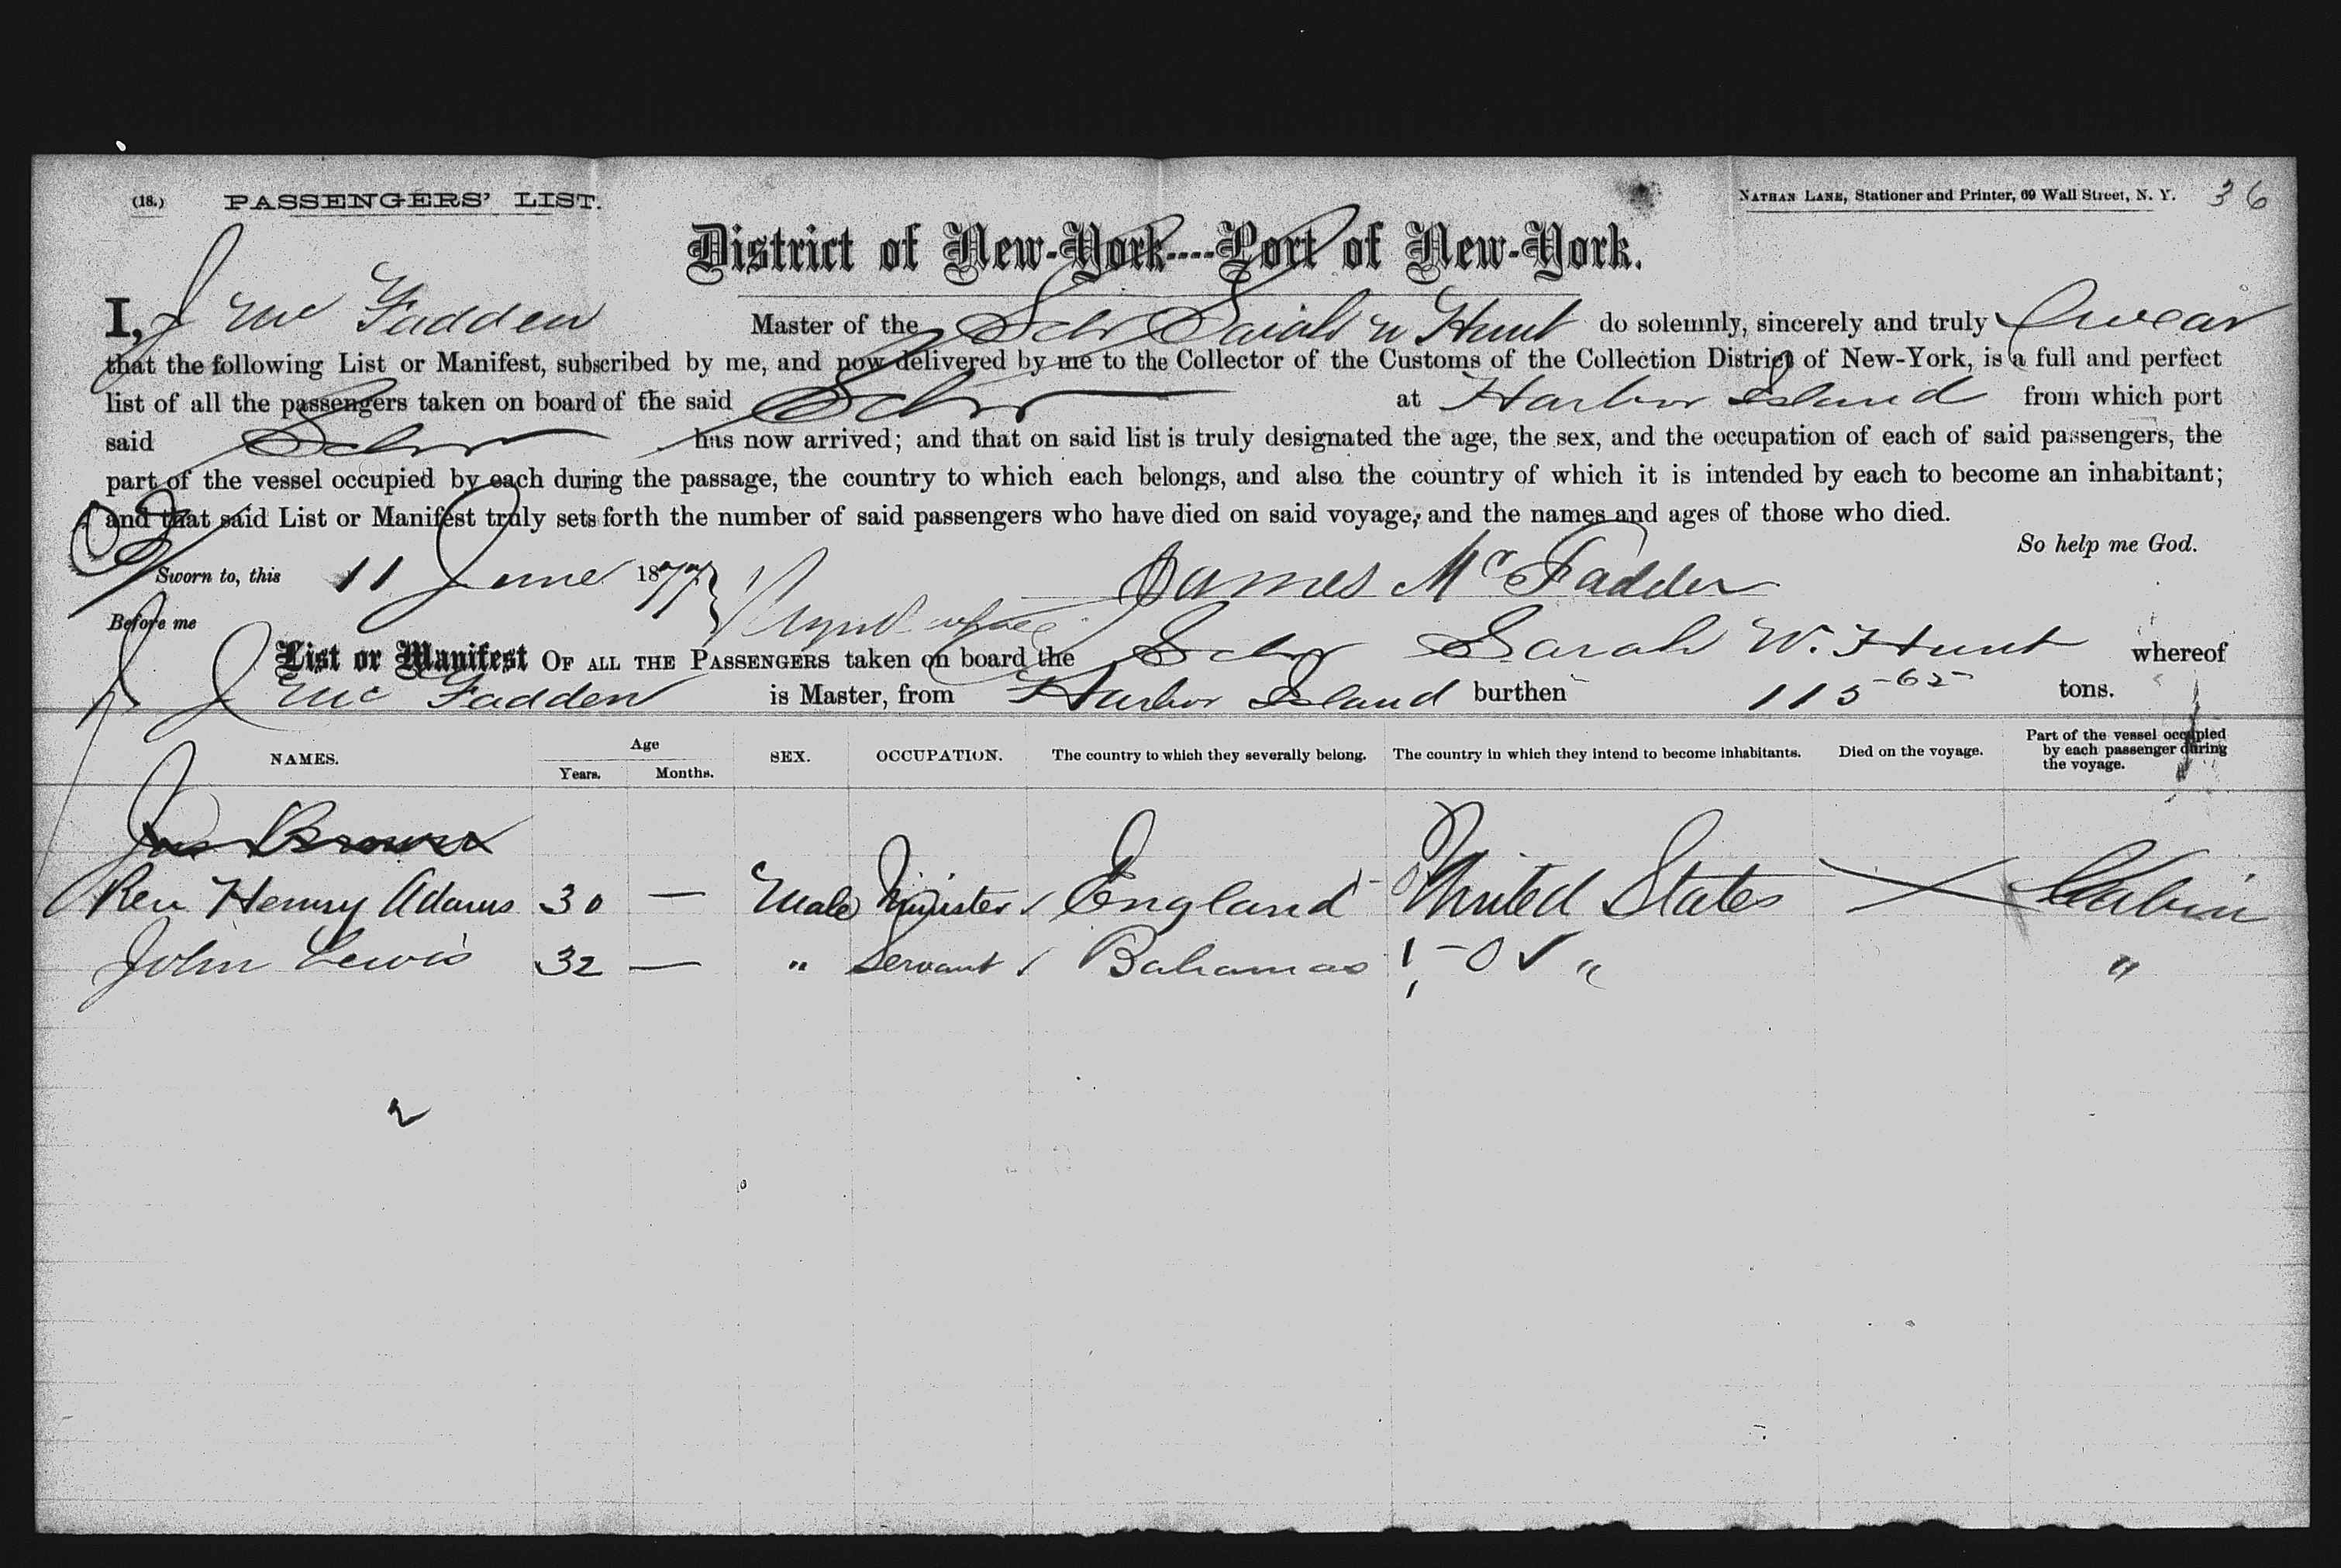 (18.) PASSENGERS' LIST. NATHAN LANE, Stationer and Printer, 69 Wall Street, N. Y. 36
District of New-York----Port of New-York.
I, J Mc Fadden Master of the Schr Sarah W Hunt do solemnly, sincerely and truly Swear
that the following List or Manifest, subscribed by me, and now delivered by me to the Collector of the Customs of the Collection District of New-York, is a full and perfect
list of all the passengers taken on board of the said Schr at Harbor Island from which port
said Schr has now arrived; and that on said list is truly designated the age, the sex, and the occupation of each of said passengers, the
part of the vessel occupied by each during the passage, the country to which each belongs, and also the country of which it is intended by each to become an inhabitant;
and that said List or Manifest truly sets forth the number of said passengers who have died on said voyage, and the names and ages of those who died.
So help me God.
Sworn to, this 11 June 1877 James McFadden
Before me
List or Manifest OF ALL THE PASSENGERS taken on board the Schr Sarah W. Hunt whereof
J Mc Fadden is Master, from Harbor Island burthen 115-65 tons.
NAMES. Age Years. Months. SEX. OCCUPATION. The country to which they severally belong. The country in which they intend to become inhabitants. Died on the voyage. Part of the vessel occupied by each passenger during the voyage.
Jas Brown
Rev Henry Adams 30 — Male Minister England United States Cabin
John Lewis 32 — " Servant Bahamas " "
2